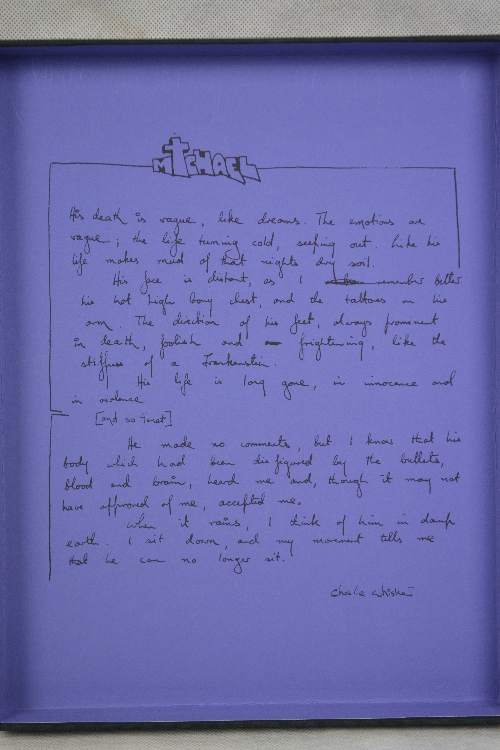 MICHAEL
His death is vague, like dreams. The emotions are
vague; the life turning cold, seeping out. Like his
life makes mud of that nights dry soil.
His face is distant, as I remember better
his hot high bony chest, and the tattoos on his
arm. The direction of his feet, always prominent
in death, foolish and frightening, like the
stiffness of a Frankenstein.
His life is long gone, in innocence and
in violence
[and so Genet]
He made no comments, but I know that his
body which had been disfigured by the bullets,
blood and brain, heard me and, though it may not
have approved of me, accepted me.
When it rains, I think of him in damp
earth. I sit down, and my movement tells me
that he can no longer sit.
Charlie Whisker